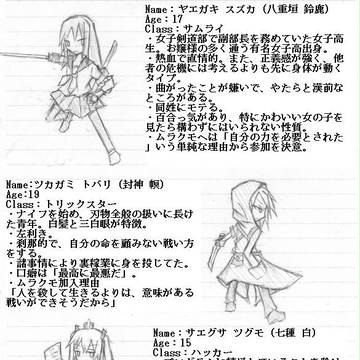 Name:ヤエガキ スズカ (八重垣 鈴鹿)
Age:17
Class:サムライ
・女子剣道部で副部長を務めていた女子高
生。お嬢様の多く通う有名女子高出身。
・熱血で直情的。また、正義感が強く、他
者の危機には考えるよりも先に身体が動く
タイプ。
・曲がったことが嫌いで、やたらと漢前な
ところがある。
・同姓にモテる。
・百合っ気があり、特にかわいい女の子を
見たら構わずにはいられない性質。
・ムラクモへは「自分の力を必要とされた
」いう単純な理由から参加を決意。
Name:ツカガミ トバリ (封神 帳)
Age:19
Class:トリックスター
・ナイフを始め、刃物全般の扱いに長け
た青年。白髪と三白眼が特徴。
・左利き。
・刹那的で、自分の命を顧みない戦い方
をする。
・諸事情により裏稼業に身を投じてた。
・口癖は「最高に最悪だ」。
・ムラクモ加入理由
「人を殺して生きるよりは、意味がある
戦いができそうだから」
Name:サエグサ ツグモ (七種 白)
Age:15
Class:ハッカー